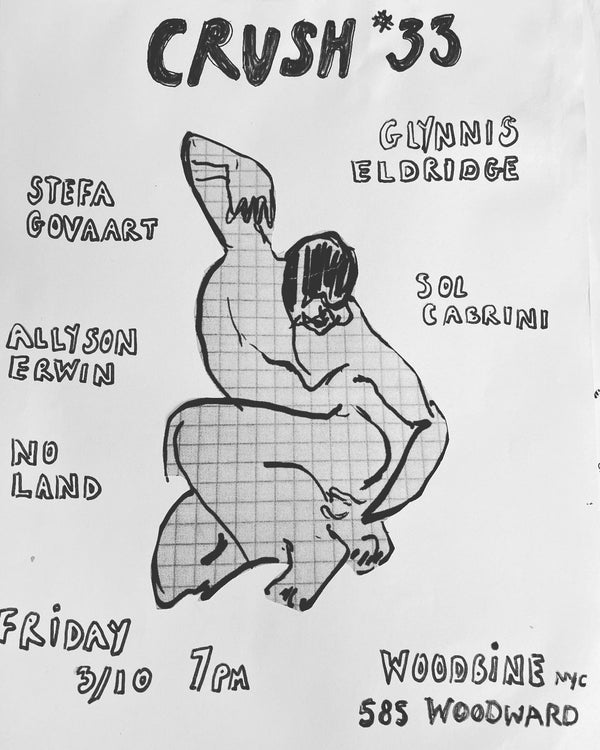 CRUSH #33
GLYNNIS
ELDRIDGE
STEFA
GOVAART
SOL
CABRINI
ALLYSON
ERWIN
NO
LAND
FRIDAY
3/10 7PM
WOODBINE NYC
585 WOODWARD